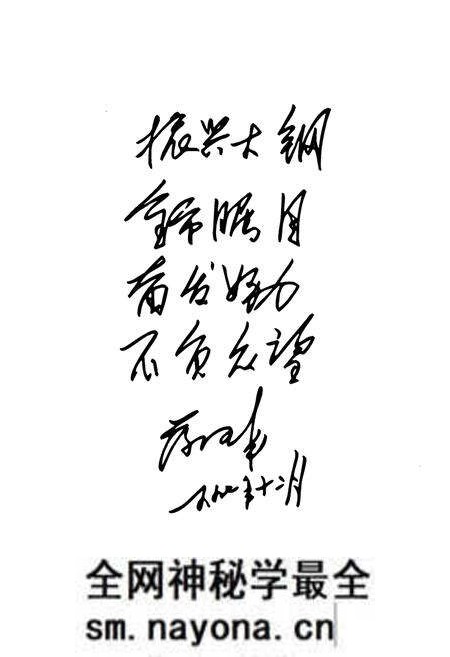 振兴大钢
全市瞩目
奋发努力
不负众望
十二月
全网神秘学最全
sm.nayona.cn